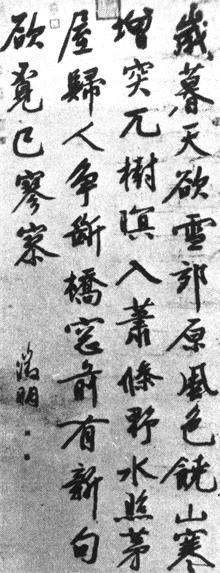 歲暮天欲雪郊原風色饒山寒
增突兀樹暝入蕭條野水照茅
屋歸人爭斷橋窓前有新句
欲覓已寥寥
徵明